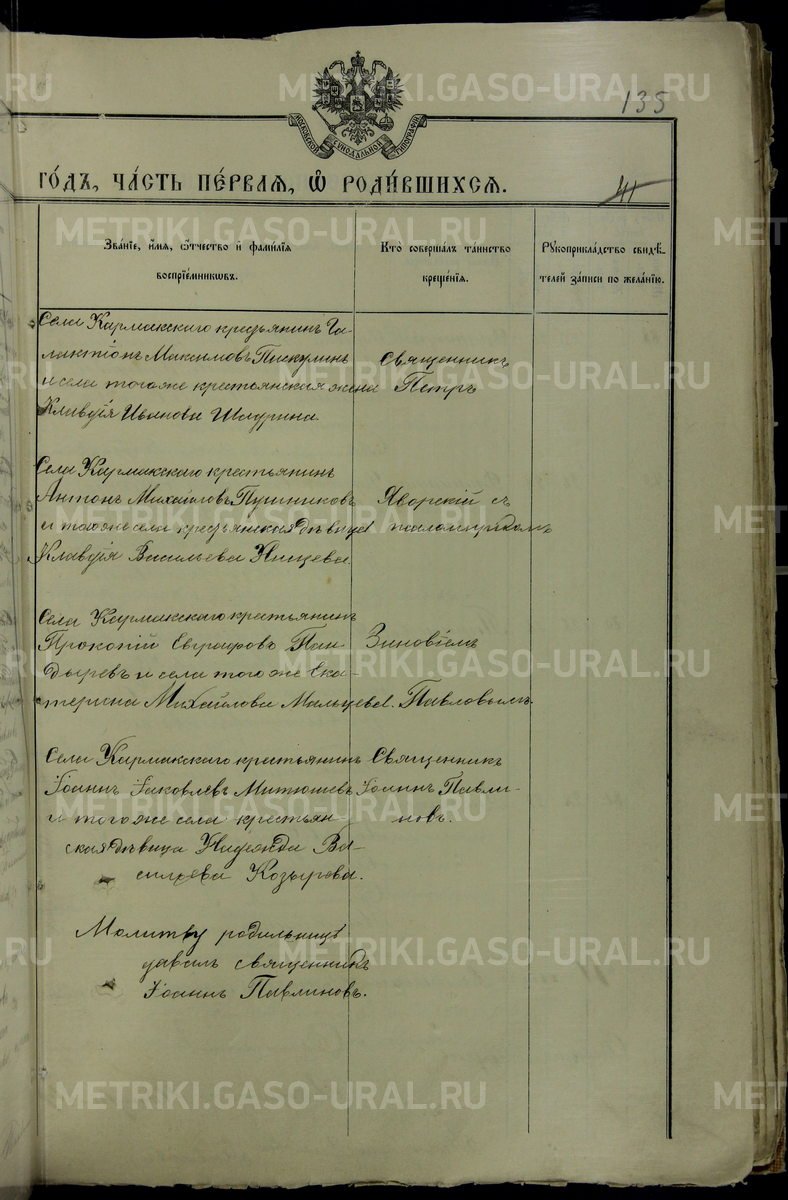 135
МОСКОВСКОЙ СѴНОДАЛЬНОЙ ТИПОГРАФІИ
ГО́ДЪ, ЧА́СТЬ ПЕ́РВАѦ, Ѽ РОДИ́ВШИХСѦ.
41
Зва́нїе, и́мѧ, ѻ҆́тчество и҆ фами́лїѧ
воспрїе́мникѡвъ.
Кто̀ соверша́лъ та́инство
креще́нїѧ.
Рꙋкоприкла́дство свидѣ́-
телей за́писи по жела́нїю.
Села Кармакскаго крестьянинъ Га-
лактіонъ Максимовъ Пискулинъ
и села того же крестьянская жена
Клавдія Иванова Шадрина.
Священникъ
Петръ
Села Кармакскаго крестьянинъ
Антонъ Михайловъ Пушниковъ
и того же села крестьянская дѣвица
Клавдія Васильева
Яворскій съ
псаломщикомъ
Села Кармакскаго крестьянинъ
Прокопій Евграфовъ Пан-
дыревъ и села того же Ека-
терина Михайлова Мальцева.
Зиновіемъ
Павловымъ.
Села Кармакскаго крестьянинъ
Іоаннъ Іаковлевъ Митюшевъ
и того же села крестьян-
ская дѣвица Надежда Ва-
сильева Козырева.
Священникъ
Іоаннъ Павли-
новъ.
Молитву родильницѣ
давалъ священникъ
Іоаннъ Павлиновъ.
METRIKI.GASO-URAL.RU